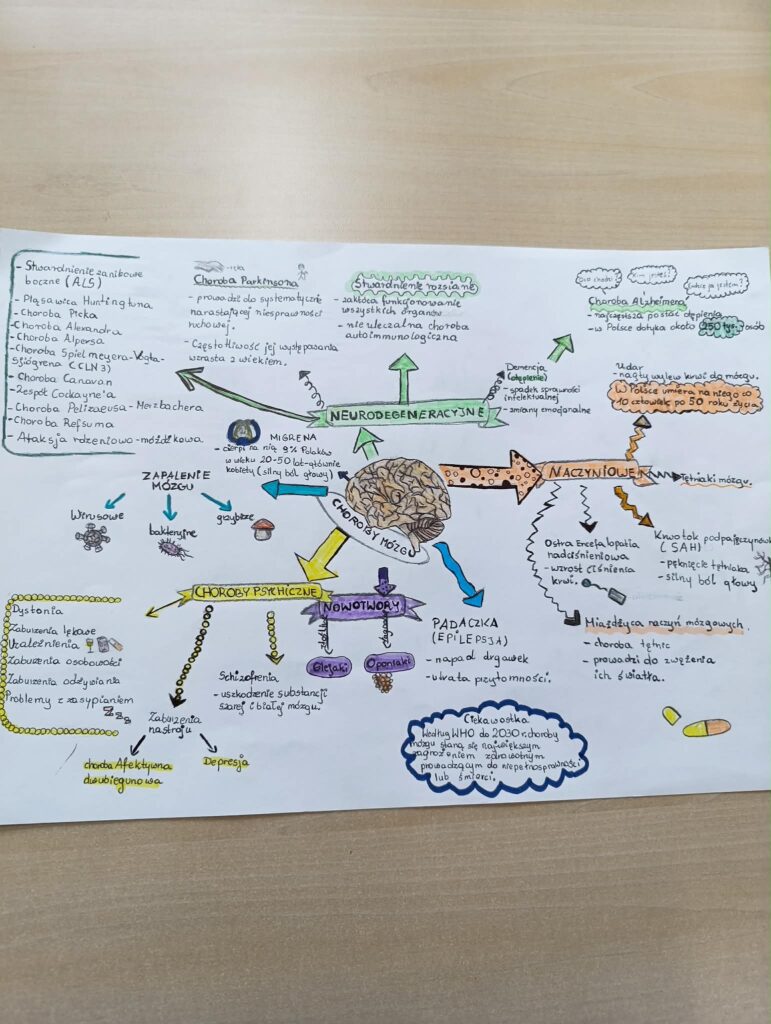 - Stwardnienie zanikowe
boczne (ALS)
- Pląsawica Huntingtona
- Choroba Picka
- Choroba Alexandra
- Choroba Alpersa
- Choroba Spielmeyera-Vogta-
Sjögrena (CLN3)
- Choroba Canavan
- Zespół Cockayne'a
- Choroba Pelizaeusa-Merzbachera
- Choroba Refsuma
- Ataksja rdzeniowo-móżdżkowa.
Choroba Parkinsona
- prowadzi do systematycznie
narastającej niesprawności
ruchowej.
- Częstotliwość jej występowania
wzrasta z wiekiem.
Stwardnienie rozsiane
- zakłóca funkcjonowanie
wszystkich organów
- nie uleczalna choroba
autoimmunologiczna
Kim jesteś?
Gdzie ja jestem?
Choroba Alzheimera
- najczęstsza postać otępienia
- w Polsce dotyka około 250 tyś. osób
Demencja
(otępienie)
- spadek sprawności
intelektualnej
- zmiany emocjonalne
NEURODEGENERACYJNE
Udar
- nagły wylew krwi do mózgu.
W Polsce umiera na niego co
10 człowiek po 50 roku życia
MIGRENA
- cierpi na nią 9% Polaków
w wieku 20-50 lat-głównie
kobiety (silny ból głowy)
NACZYNIOWE
Tętniaki mózgu.
CHOROBY MÓZGU
ZAPALENIE
MÓZGU
Wirusowe
bakteryjne
grzybicze
Ostra Encefalopatia
nadciśnieniowa
- wzrost ciśnienia
krwi.
Krwotok podpajęczynówk
(SAH)
- pęknięcie tętniaka
- silny ból głowy
Miażdżyca naczyń mózgowych.
- choroba tętnic
- prowadzi do zwężenia
ich światła.
CHOROBY PSYCHICZNE
NOWOTWORY
złośliwe
łagodne
Glejaki
Oponiaki
PADACZKA
(EPILEPSJA)
- napad drgawek
- utrata przytomności.
Dystonia
Zaburzenia lękowe
Uzależnienia
Zaburzenia osobowości
Zaburzenia odżywiania
Problemy z zasypianiem
Zzz
Schizofrenia
- uszkodzenie substancji
szarej i białej mózgu.
Zaburzenia
nastroju
choroba Afektywna
dwubiegunowa
Depresja
Ciekawostka
Według WHO do 2030 r. choroby
mózgu staną się największym
zagrożeniem zdrowotnym
prowadzącym do niepełnosprawności
lub śmierci.